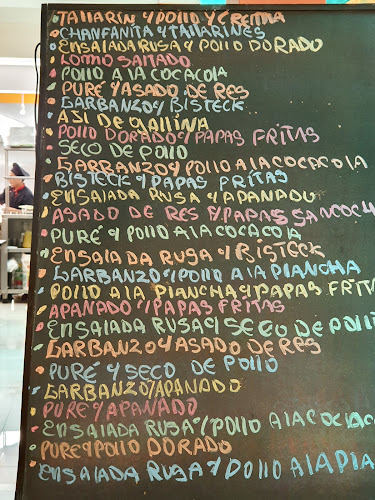 TALLARIN Y POLLO Y CREMA
CHANFANITA Y TALLARINES
ENSALADA RUSA Y POLLO DORADO
LOMO SALTADO
POLLO A LA COCACOLA
PURÉ Y ASADO DE RES
GARBANZO Y BISTECK
AJI DE GALLINA
POLLO DORADO Y PAPAS FRITAS
SECO DE POLLO
GARBANZO Y POLLO A LA COCACOLA
BISTECK Y PAPAS FRITAS
ENSALADA RUSA Y APANADO
ASADO DE RES Y PAPAS SANCOCH
PURÉ Y POLLO A LA COCACOLA
ENSALADA RUSA Y BISTECK
GARBANZO Y POLLO A LA PLANCHA
POLLO A LA PLANCHA Y PAPAS FRIT
APANADO Y PAPAS FRITAS
ENSALADA RUSA Y SECO DE POLL
GARBANZO Y ASADO DE RES
PURÉ Y SECO DE POLLO
GARBANZO Y APANADO
PURE Y APANADO
ENSALADA RUSA Y POLLO A LA COCAC
PURE Y POLLO DORADO
ENSALADA RUSA Y POLLO A LA PLA